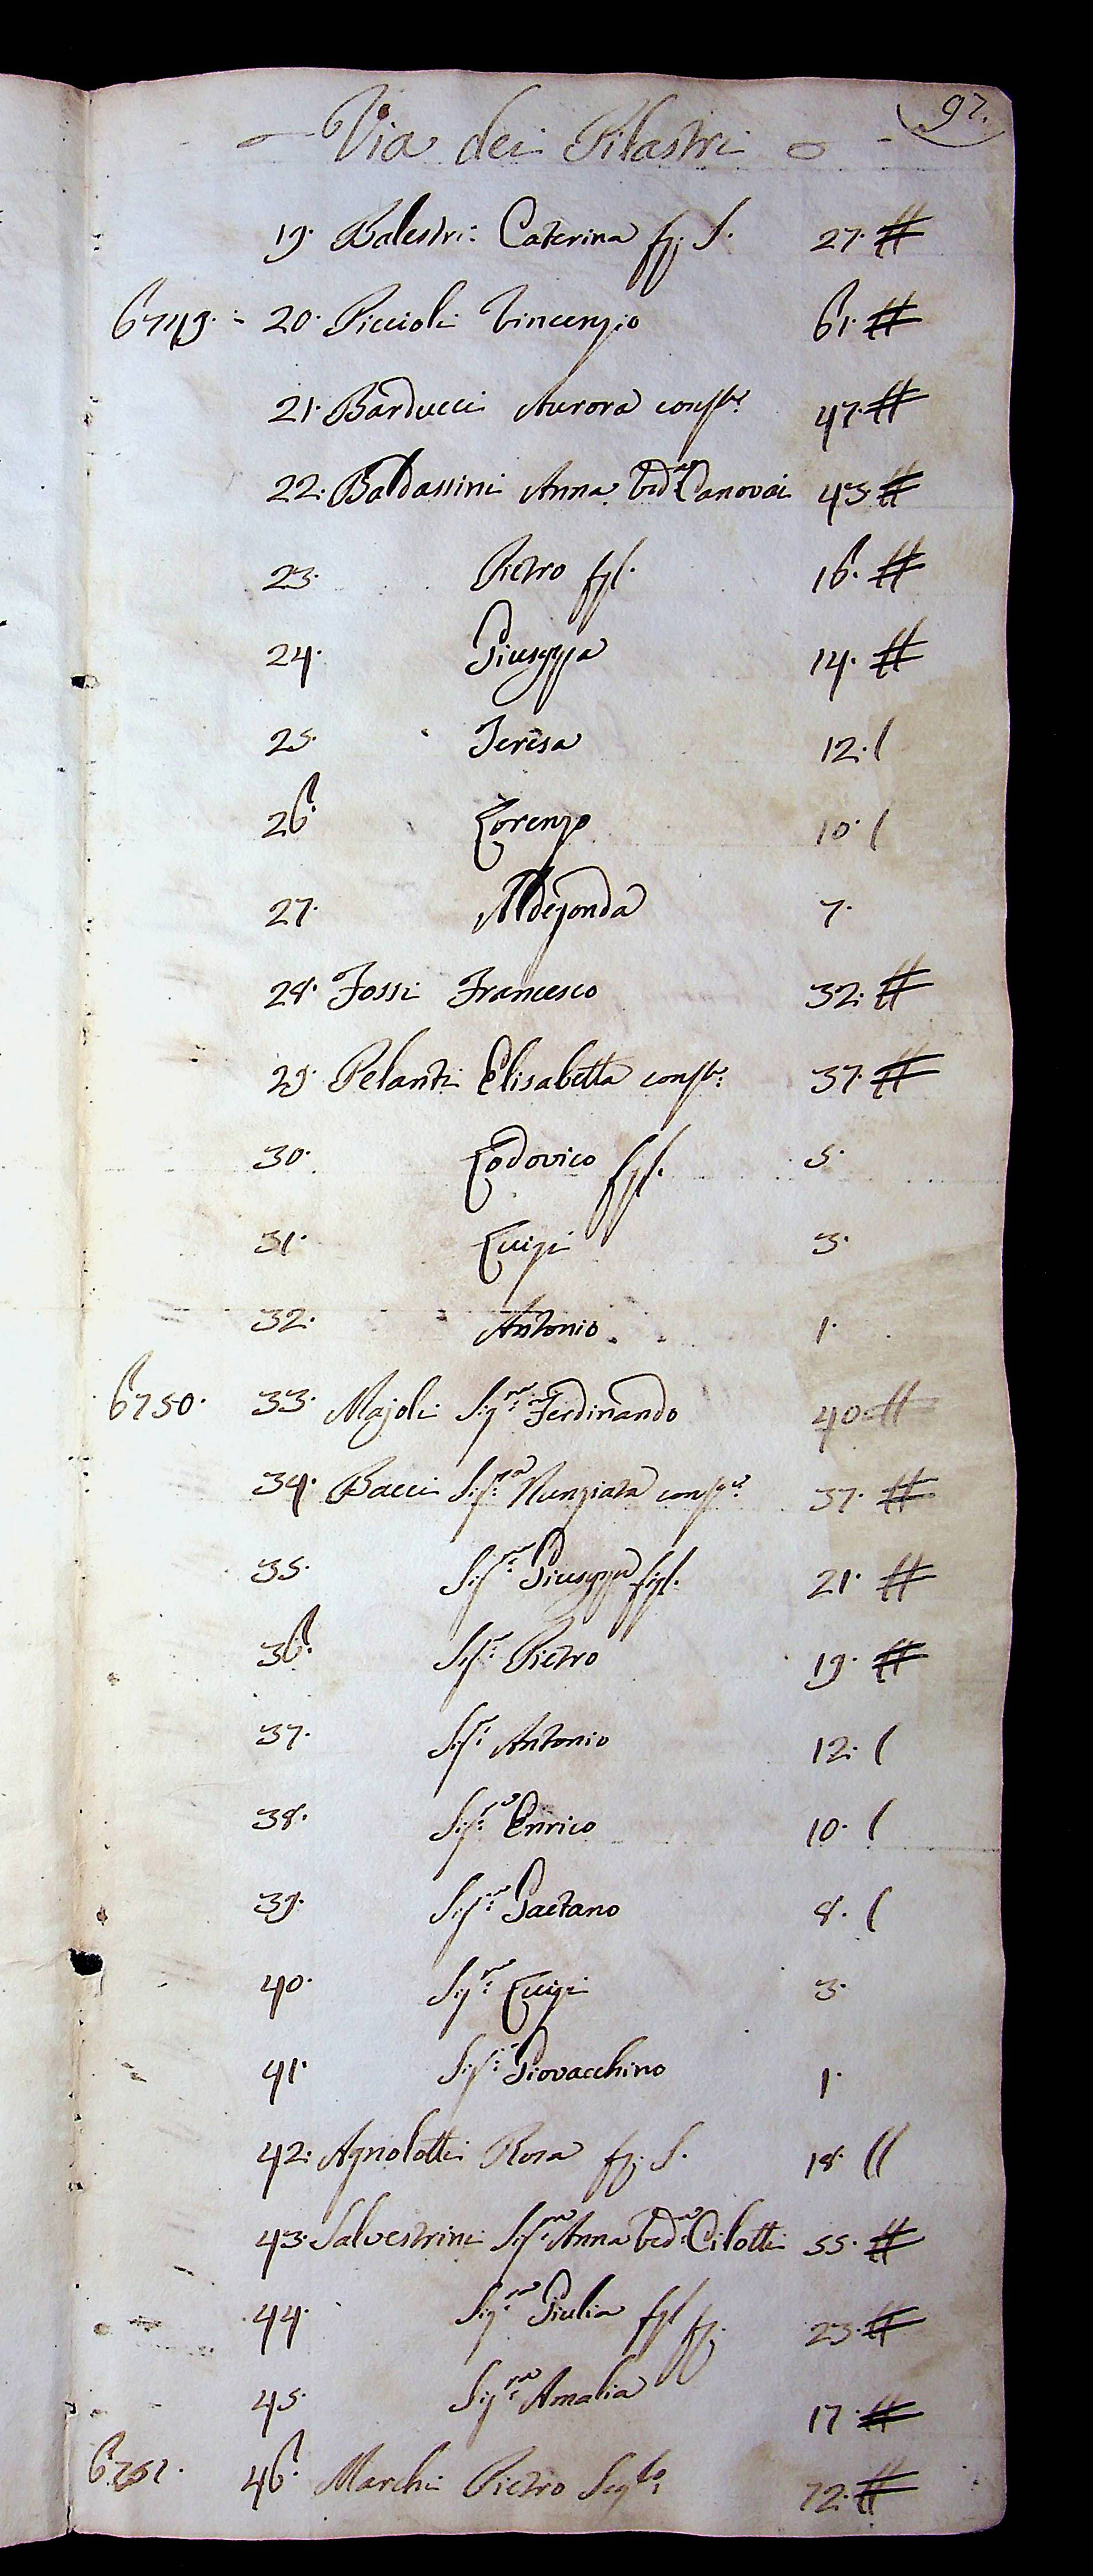 97.
Via dei Pilastri
19. Balestri: Caterina S. 27.
6749. 20. Piccioli Vincenzio 61.
21. Barducci Aurora cons.te 47.
22. Baldassini Anna Ved.a Canovai 43.
23. Pietro figl. 16.
24. Giuseppa 14.
25. Teresa 12. (
26. Lorenzo 10. (
27. Aldegonda 7.
28. Fossi Francesco 32.
29. Pelanti Elisabetta cons.te 37.
30. Lodovico figl. 5.
31. Luigi 3.
32. Antonio 1.
6750. 33. Majoli Sig.re Ferdinando 40.
34. Bacci Sig.ra Nunziata cons.te 37.
35. Sig.ra Giuseppa figl. 21.
36. Sig.r Pietro 19.
37. Sig.r Antonio 12. (
38. Sig.re Enrico 10. (
39. Sig.re Gaetano 8. (
40. Sig.re Luigi 3.
41. Sig.r Giovacchino 1.
42. Agnolotti Rosa S. 18. ((
43. Salvestrini Sig.ra Anna Ved.a Cilotti 55.
44. Sig.ra Giulia figl 23.
45. Sig.ra Amalia 17.
6751. 46. Marchi Pietro 72.